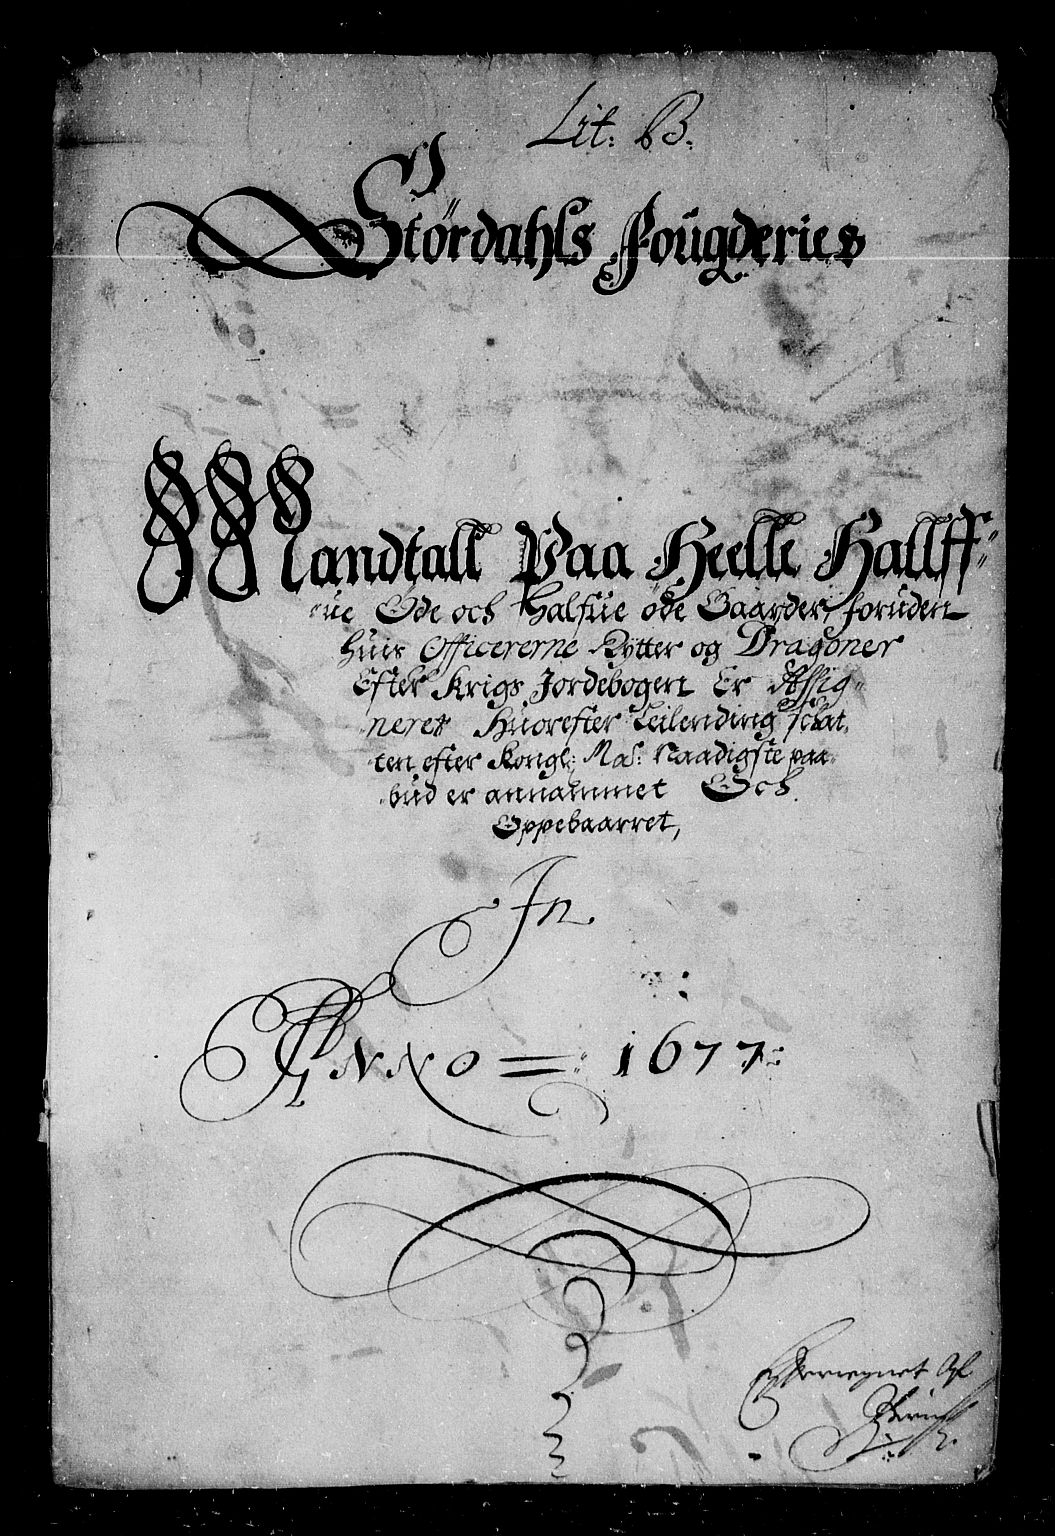 Lit: B.
Stördahls Fougderies
Mandtall Paa Heelle Hallff=
ue Øde och Halfue øde Gaarder, foruden
huis Officererne Rytter og Dragoner
Efter Krigs Jordebogen Er Assig=
neret Huorefter Leilending schat,
ten efter Kongl: Mas: Naadigste paa
bud er annammet Och
Oppebaarret,
In
Anno = 1677
Igiennemregnet Af